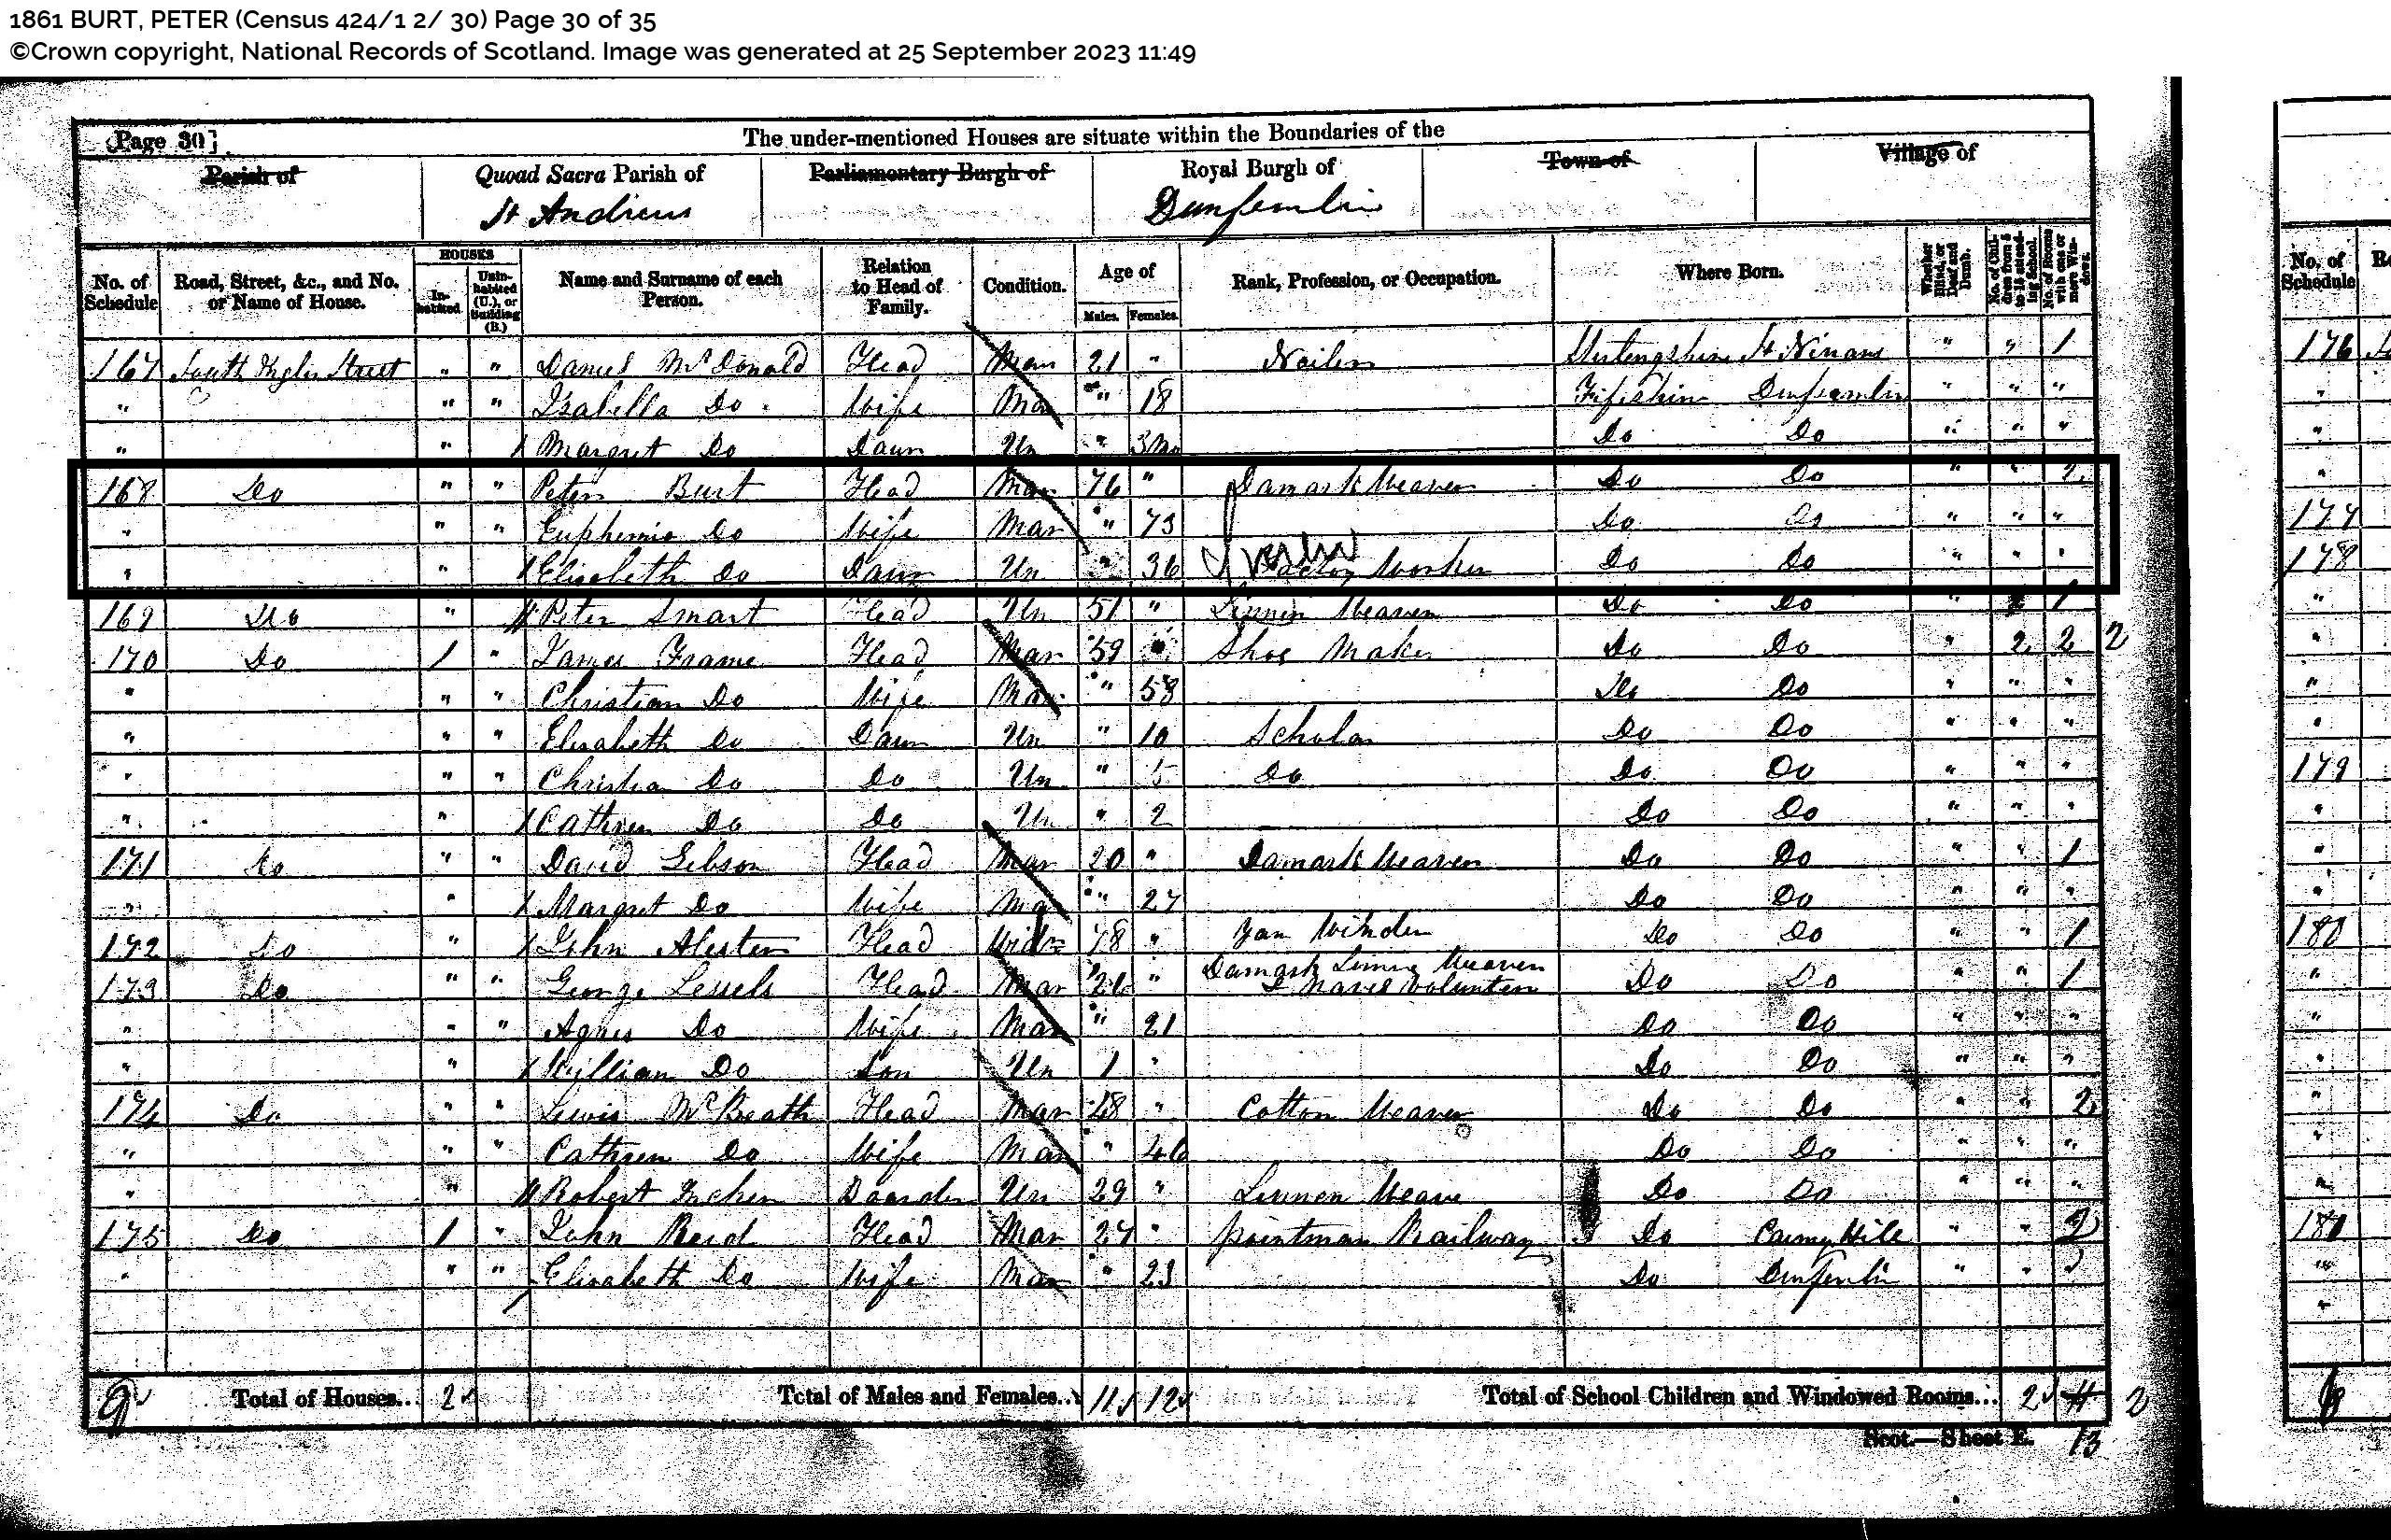 1861 BURT, PETER (Census 424/1 2/ 30) Page 30 of 35
©Crown copyright, National Records of Scotland. Image was generated at 25 September 2023 11:49
Page 30]
The under-mentioned Houses are situate within the Boundaries of the
Parish of Quoad Sacra Parish of Parliamentary Burgh of Royal Burgh of Town of Village of
St Andrews Dunfermlin
No. of Schedule Road, Street, &c., and No. or Name of House. HOUSES Inhabited Uninhabited (U.), or Building (B.) Name and Surname of each Person. Relation to Head of Family. Condition. Age of Males. Females. Rank, Profession, or Occupation. Where Born. Whether Blind, or Deaf and Dumb. No. of Children from 5 to 15 attending School. No. of Rooms with one or more Windows.
167 South Street " " Daniel McDonald Head Mar 21 " Nailer Stirlingshire St Ninians " " 1
" " " Isabella Do Wife Mar " 18 Fifeshire Dunfermlin " " "
" " Margret Do Daur Un " 3 Mo Do Do " " "
168 Do " " Peter Burt Head Mar 76 " Damask Weaver Do Do " " 2
" " " Euphemia Do Wife Mar " 73 Do Do " " "
" " Elisabeth Do Daur Un " 36 Factory Worker Do Do " " "
169 Do " Peter Smart Head Un 51 " Linnen Weaver Do Do " 1
170 Do 1 " James Frame Head Mar 59 Shoe Maker Do Do " 2 2 2
" " " Christian Do Wife Mar " 58 Do Do " " "
" " " Elisabeth Do Daur Un " 10 Scholar Do Do " " "
" " " Christian Do Do Un " 5 Do Do Do " " "
" " Cathren Do Do Un " 2 Do Do " " "
171 Do " " David Gibson Head Mar 20 " Damask Weaver Do Do " " 1
" " Margret Do Wife Mar " 27 Do Do " " "
172 Do " John Head Widr 78 " Yarn Winder Do Do " " 1
173 Do " " George Lessels Head Mar 26 " Damask Linnen Weaver
& Navel Volunteer Do Do " " 1
" " " Agnes Do Wife Mar " 21 Do Do " " "
" " William Do Son Un 1 " Do Do " " "
174 Do " " Lewis McBeath Head Mar 48 " Cotton Weaver Do Do " " 2
" " " Cathren Do Wife Mar " 46 Do Do " " "
" " Robert Boarder Un 29 " Linnen Weave Do Do " " "
175 Do 1 " John Reid Head Mar 24 " pointman Railway Do Carney Hill " " 2
" " " Elisabeth Do Wife Mar " 23 Do Dunfermlin " " "
9 Total of Houses... 2 Total of Males and Females... 11 12 Total of School Children and Windowed Rooms... 2 11 2
Scot.—Sheet E. 13
No. of Schedule
176
177
178
179
180
181